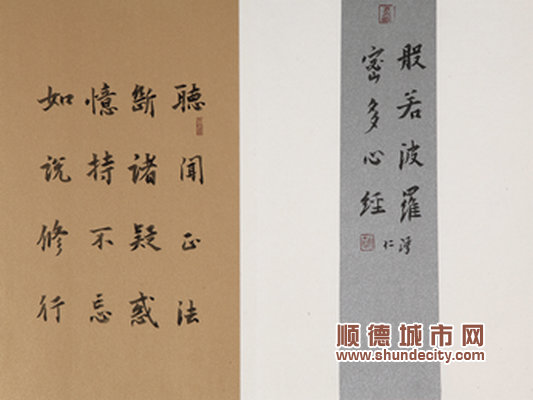 般若波羅
密多心經
仁
聽聞正法
斷諸疑惑
憶持不忘
如說修行
顺德城市网
www.shundecity.com